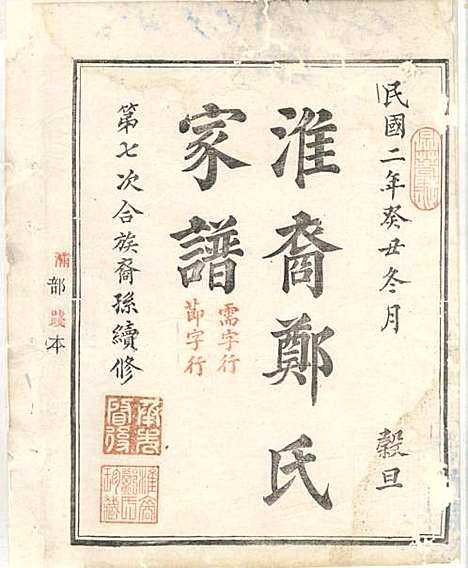 民國二年癸丑冬月 穀旦
淮裔鄭氏
家譜
需字行
節字行
第七次合族裔孫續修
部 本
承先
啓後
淮裔
鄭氏